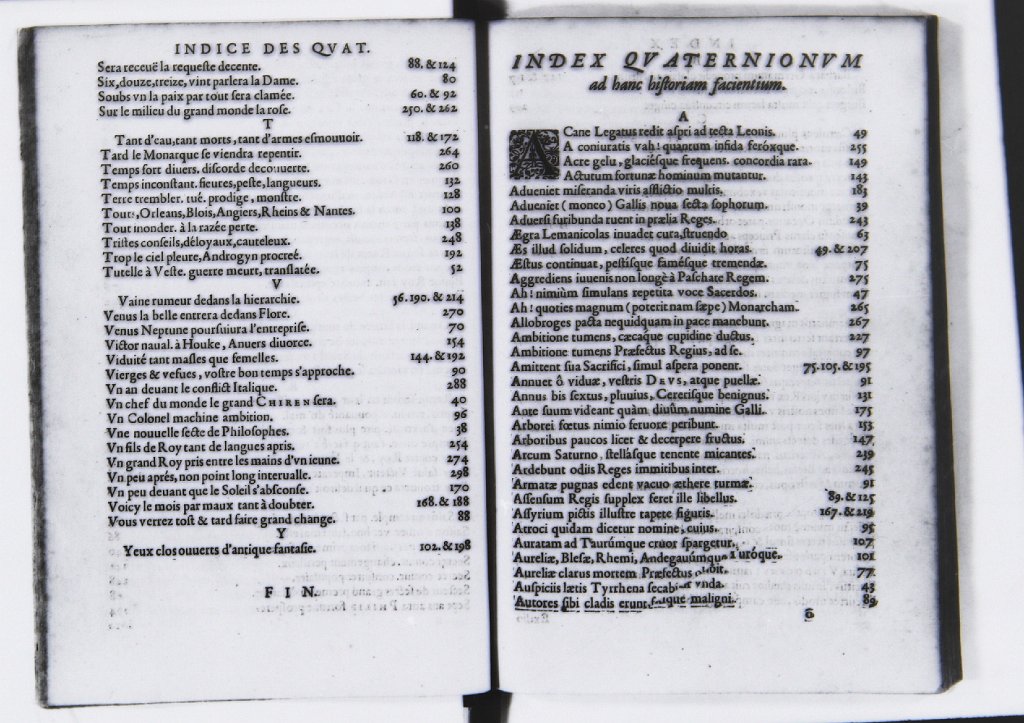 INDICE DES QVAT.
Sera receuë la requeste decente. 88. & 124
Six, douze, treize, vint parlera la Dame. 80
Soubs vn la paix par tout sera clamée. 60. & 92
Sur le milieu du grand monde la rose. 250. & 262
T
Tant d'eau, tant morts, tant d'armes esmouuoir. 118. & 172
Tard le Monarque se viendra repentir. 264
Temps fort diuers. discorde decouuerte. 260
Temps inconstant. fieures, peste, langueurs. 132
Terre trembler. tué. prodige, monstre. 128
Tours, Orleans, Blois, Angiers, Rheins & Nantes. 100
Tout inonder. à la razée perte. 138
Tristes conseils, déloyaux, cauteleux. 248
Trop le ciel pleure, Androgyn procreé. 192
Tutelle à Veste. guerre meurt, translatée. 52
V
Vaine rumeur dedans la hierarchie. 56. 190. & 214
Venus la belle entrera dedans Flore. 270
Venus Neptune poursuiura l'entreprise. 70
Victor naual. à Houke, Anuers diuorce. 154
Viduité tant masles que femelles. 144. & 192
Vierges & vefues, vostre bon temps s'approche. 90
Vn an deuant le conflict Italique. 288
Vn chef du monde le grand CHIREN sera. 40
Vn Colonel machine ambition. 96
Vne nouuelle secte de Philosophes. 38
Vn fils de Roy tant de langues apris. 254
Vn grand Roy pris entre les mains d'vn ieune. 274
Vn peu aprés, non point long interualle. 298
Vn peu deuant que le Soleil s'absconse. 170
Voicy le mois par maux tant à doubter. 168. & 188
Vous verrez tost & tard faire grand change. 88
Y
Yeux clos ouuerts d'antique fantasie. 102. & 198
FIN.
INDEX QVATERNIONVM
ad hanc historiam facientium.
A
A Cane Legatus redit aspri ad tecta Leonis. 49
A coniuratis vah! quantum infida feróxque. 255
Acre gelu, glaciésque frequens. concordia rara. 149
Actutum fortunæ hominum mutantur. 143
Adueniet miseranda viris afflictio multis. 183
Adueniet (moneo) Gallis noua secta sophorum. 39
Aduersi furibunda ruent in prælia Reges. 243
Ægra Lemanicolas inuadet cura, struendo 63
Æs illud solidum, celeres quod diuidit horas. 49. & 207
Æstus continuat, pestísque famésque tremendæ. 75
Aggrediens iuuenis non longè à Paschate Regem. 275
Ah! nimiùm simulans repetita voce Sacerdos. 47
Ah! quoties magnum (poterit nam sæpe) Monarcham. 265
Allobroges pacta nequidquam in pace manebunt. 267
Ambitione tumens, cæcaque cupidine ductus. 227
Ambitione tumens Præfectus Regius, ad se. 97
Amittent sua Sacrifici, simul aspera ponent. 75. 105. & 195
Annuet ô viduæ, vestris DEVS, atque puellæ. 91
Annus bis sextus, pluuius, Cererísque benignus. 131
Ante suum videant quàm diuûm numine Galli. 175
Arborei fœtus nimio feruore peribunt. 153
Arboribus paucos licet & decerpere fructus. 147
Arcum Saturno, stellásque tenente micantes. 239
Ardebunt odiis Reges immitibus inter. 245
Armatæ pugnas edent vacuo æthere turmæ. 91
Assensum Regis supplex feret ille libellus. 89. & 125
Assyrium pictis illustre tapete figuris. 167. & 219
Atroci quidam dicetur nomine, cuius. 95
Auratam ad Taurúmque cruor spargetur. 107
Aureliæ, Blesæ, Rhemi, Andegauúmque Turóque. 101
Aureliæ clarus mortem Præfectus obit. 77
Auspiciis lætis Tyrrhena secabitur vnda. 43
Autores sibi cladis erunt, suique maligni. 89
6